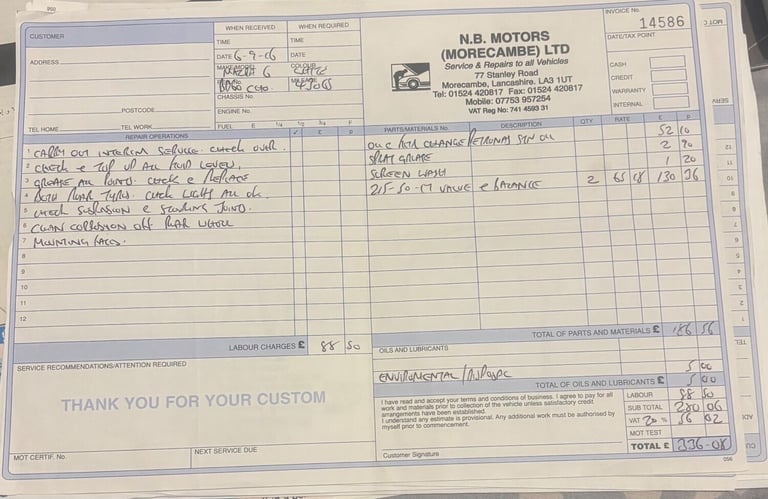 CUSTOMER
WHEN RECEIVED
WHEN REQUIRED
INVOICE No.
14586
TIME
TIME
DATE 6-9-
DATE
DATE/TAX POINT
ADDRESS
MAKE/MODEL MAZDA 6
COLOUR
MILEAGE
CHASSIS No.
POSTCODE
ENGINE No.
TEL HOME
TEL WORK
FUEL E 1/4 1/2 3/4 F
N.B. MOTORS
(MORECAMBE) LTD
Service & Repairs to all Vehicles
77 Stanley Road
Morecambe, Lancashire. LA3 1UT
Tel: 01524 420817 Fax: 01524 420817
Mobile: 07753 957254
VAT Reg No: 741 4593 31
CASH
CREDIT
WARRANTY
INTERNAL
REPAIR OPERATIONS ✓ £ P
1 CARRY OUT INTERIM SERVICE. CHECK OVER.
2 CHECK & TOP UP ALL FLUID LEVELS.
3 GREASE ALL POINTS. CHECK & REPLACE
4 BOTH REAR TYRES. CHECK LIGHTS ALL OK.
5 CHECK SUSPENSION & STEERING JOINTS.
6 CLEAN CORROSION OFF REAR WHEEL
7 MOUNTING FACES.
8
9
10
11
12
LABOUR CHARGES £ 88 50
PARTS/MATERIALS No. DESCRIPTION QTY RATE £ P
OIL & FILTER CHANGE PETRONAS SYN OIL 52 10
SPLAT GREASE 2 90
SCREEN WASH 1 20
215-50-17 VALVE & BALANCE 2 65 18 130 36
TOTAL OF PARTS AND MATERIALS £ 186 56
OILS AND LUBRICANTS
ENVIROMENTAL/DISPOSAL 5 00
TOTAL OF OILS AND LUBRICANTS £ 5 00
SERVICE RECOMMENDATIONS/ATTENTION REQUIRED
THANK YOU FOR YOUR CUSTOM
MOT CERTIF. No.
NEXT SERVICE DUE
I have read and accept your terms and conditions of business. I agree to pay for all
work and materials prior to collection of the vehicle unless satisfactory credit
arrangements have been established.
I understand any estimate is provisional. Any additional work must be authorised by
myself prior to commencement.
Customer Signature
LABOUR 88 50
SUB TOTAL 280 06
VAT 20 % 56 02
MOT TEST
TOTAL £ 336-08